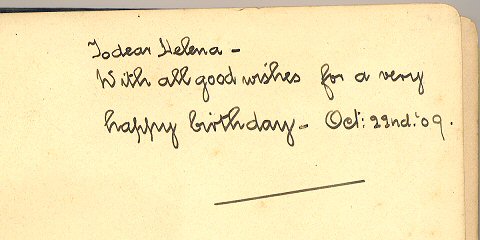 To dear Helena –
With all good wishes for a very
happy birthday – Oct: 22nd. '09.